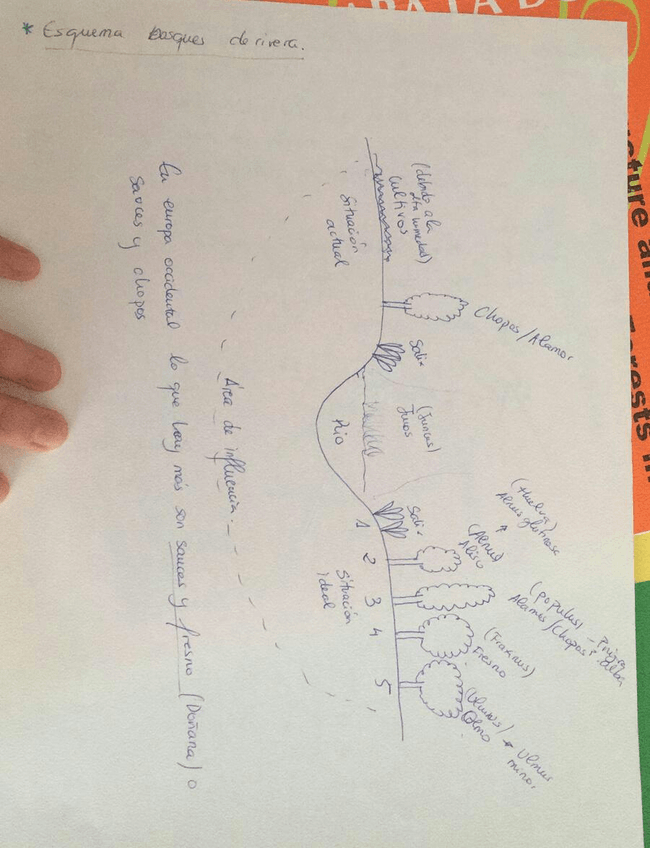 * Esquema bosques de rivera.
(debido a la
alta humedad)
cultivos
Situación
actual
Chopos/Alamos
Salix
(Juncas)
Juncos
Río
Salix
1
2
3
4
5
Situación
ideal
(Huelva)
Alnus glutinosa
(Alnus)
Aliso
(Populus)
Alamos/Chopos
alba
(Fraxinus)
Fresno
(Ulmus)
Olmo
Ulmus
minor
Área de influencia.
En europa occidental lo que hay más son sauces y fresno (Doñana) o
sauces y chopos
ABAJAD
cture and
Forests in